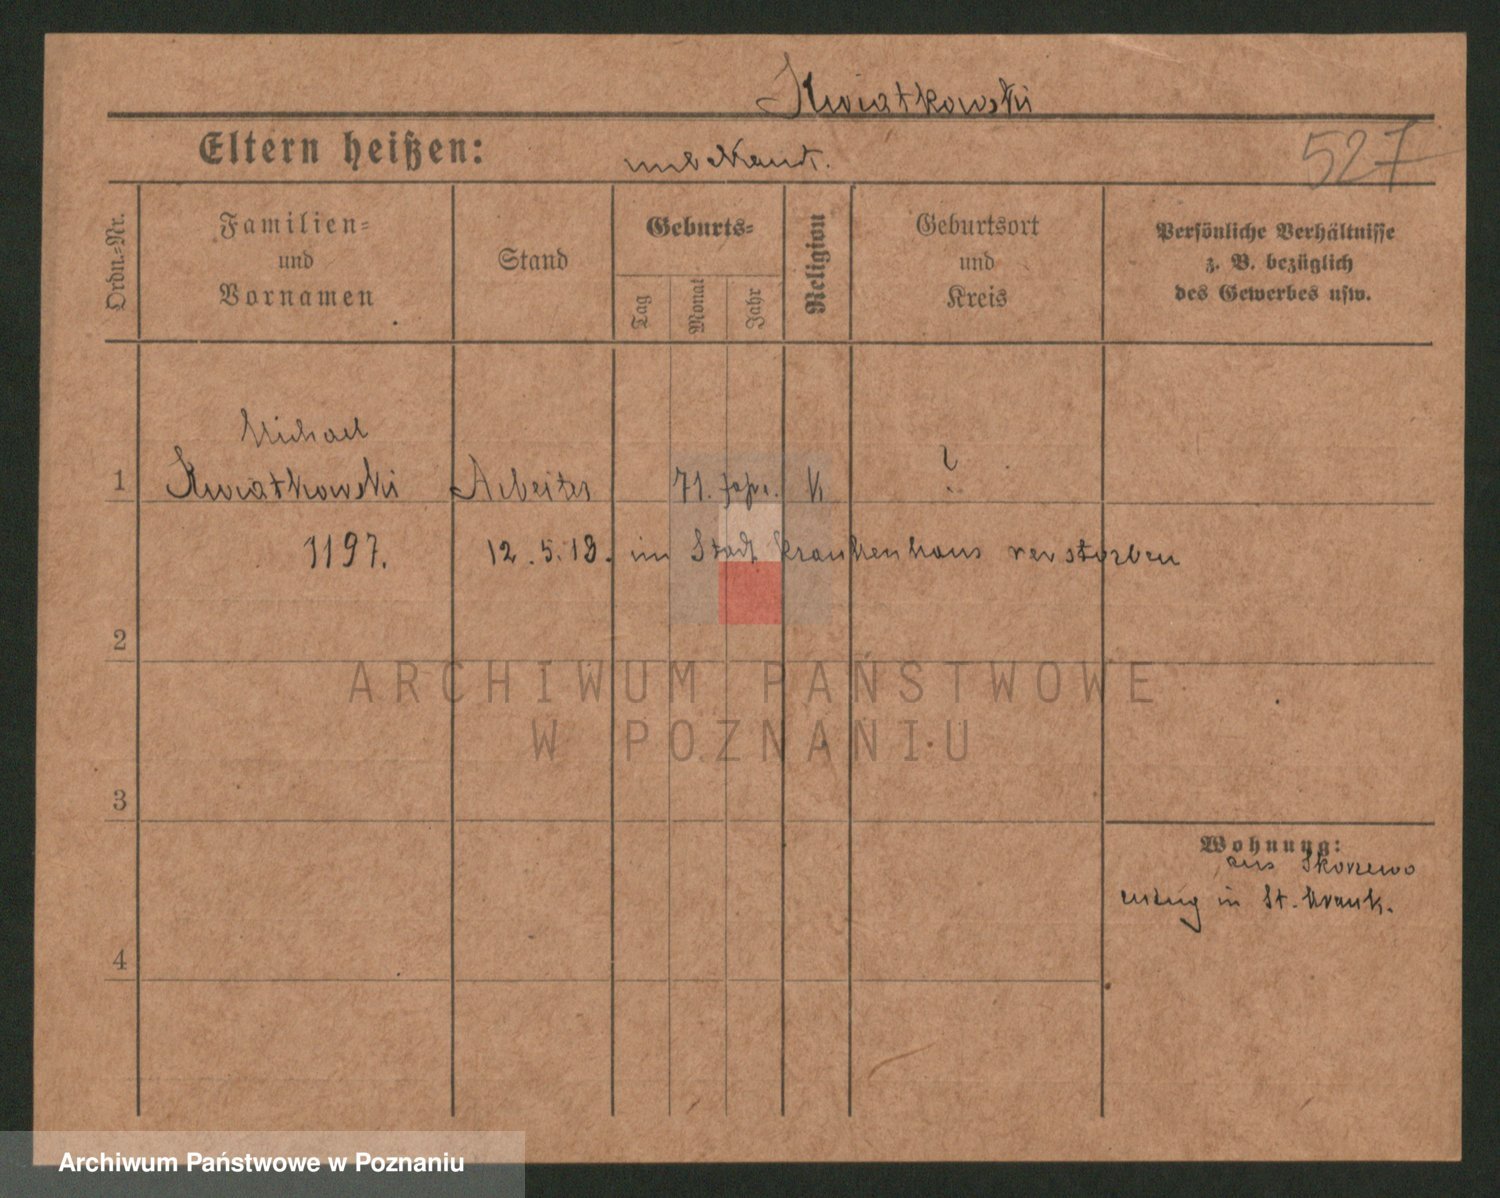 Kwiatkowski
Eltern heißen: unbekannt.
527
Ordn.-Nr.
Familien-
und
Vornamen
Stand
Geburts-
Tag
Monat
Jahr
Religion
Geburtsort
und
Kreis
Persönliche Verhältnisse
z. B. bezüglich
des Gewerbes usw.
Michael
1 Kwiatkowski Arbeiter 71. Jahr. ?
1197. 12.5.18. im Stadt. Krankenhaus verstorben
2
ARCHIWUM PAŃSTWOWE
W POZNANIU
3
Wohnung:
aus Skorzewo
in St. Krank.
4
Archiwum Państwowe w Poznaniu